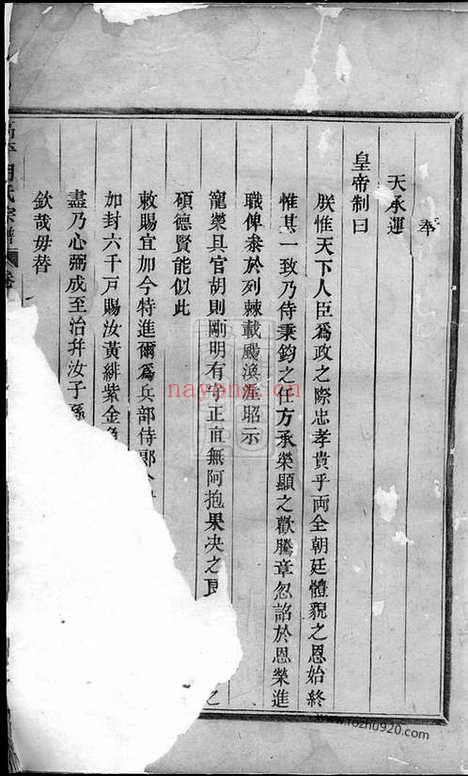 奉
天承運
皇帝制曰
朕惟天下人臣爲政之際忠孝貴乎両全朝廷體貌之恩始終
惟其一致乃侍秉鈞之仕方承榮顯之歡騰章忽諂於恩榮進
職俾黍於列棘載颺渙涯昭示
寵榮具官胡則剛明有守正直無阿抱果决之
碩德賢能似此
敕賜宜加今特進爾爲兵部侍郎
加封六千戸賜汝黃緋紫金魚
盡乃心弼成至治幷汝子孫
欽哉毋替
胡氏宗譜
nayona.cn
www.fozhu920.com